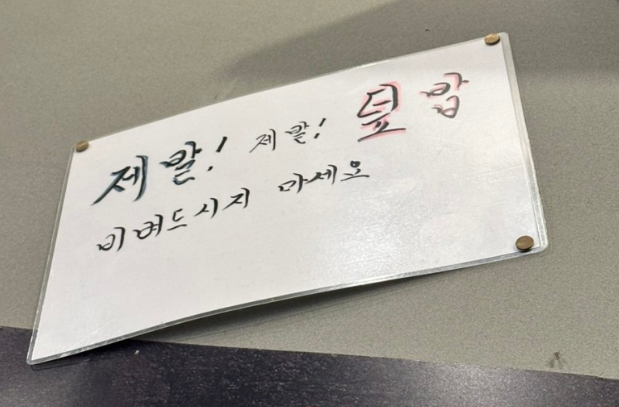 제발! 제발! 덮밥
비벼드시지 마세요